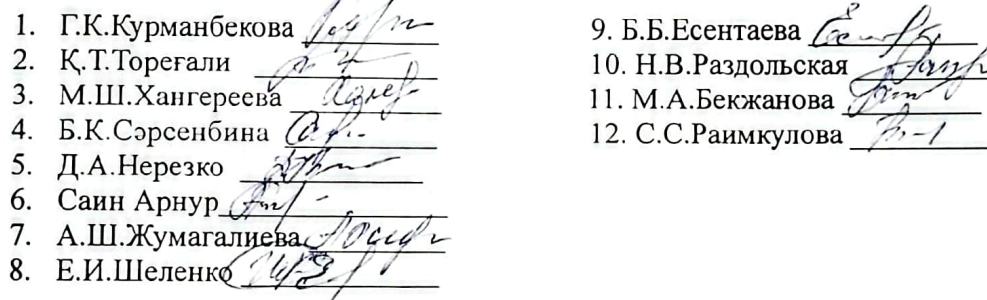 1. Г.К.Курманбекова
2. Қ.Т.Тореғали
3. М.Ш.Хангереева
4. Б.К.Сәрсенбина
5. Д.А.Нерезко
6. Саин Арнур
7. А.Ш.Жумагалиева
8. Е.И.Шеленко
9. Б.Б.Есентаева
10. Н.В.Раздольская
11. М.А.Бекжанова
12. С.С.Раимкулова